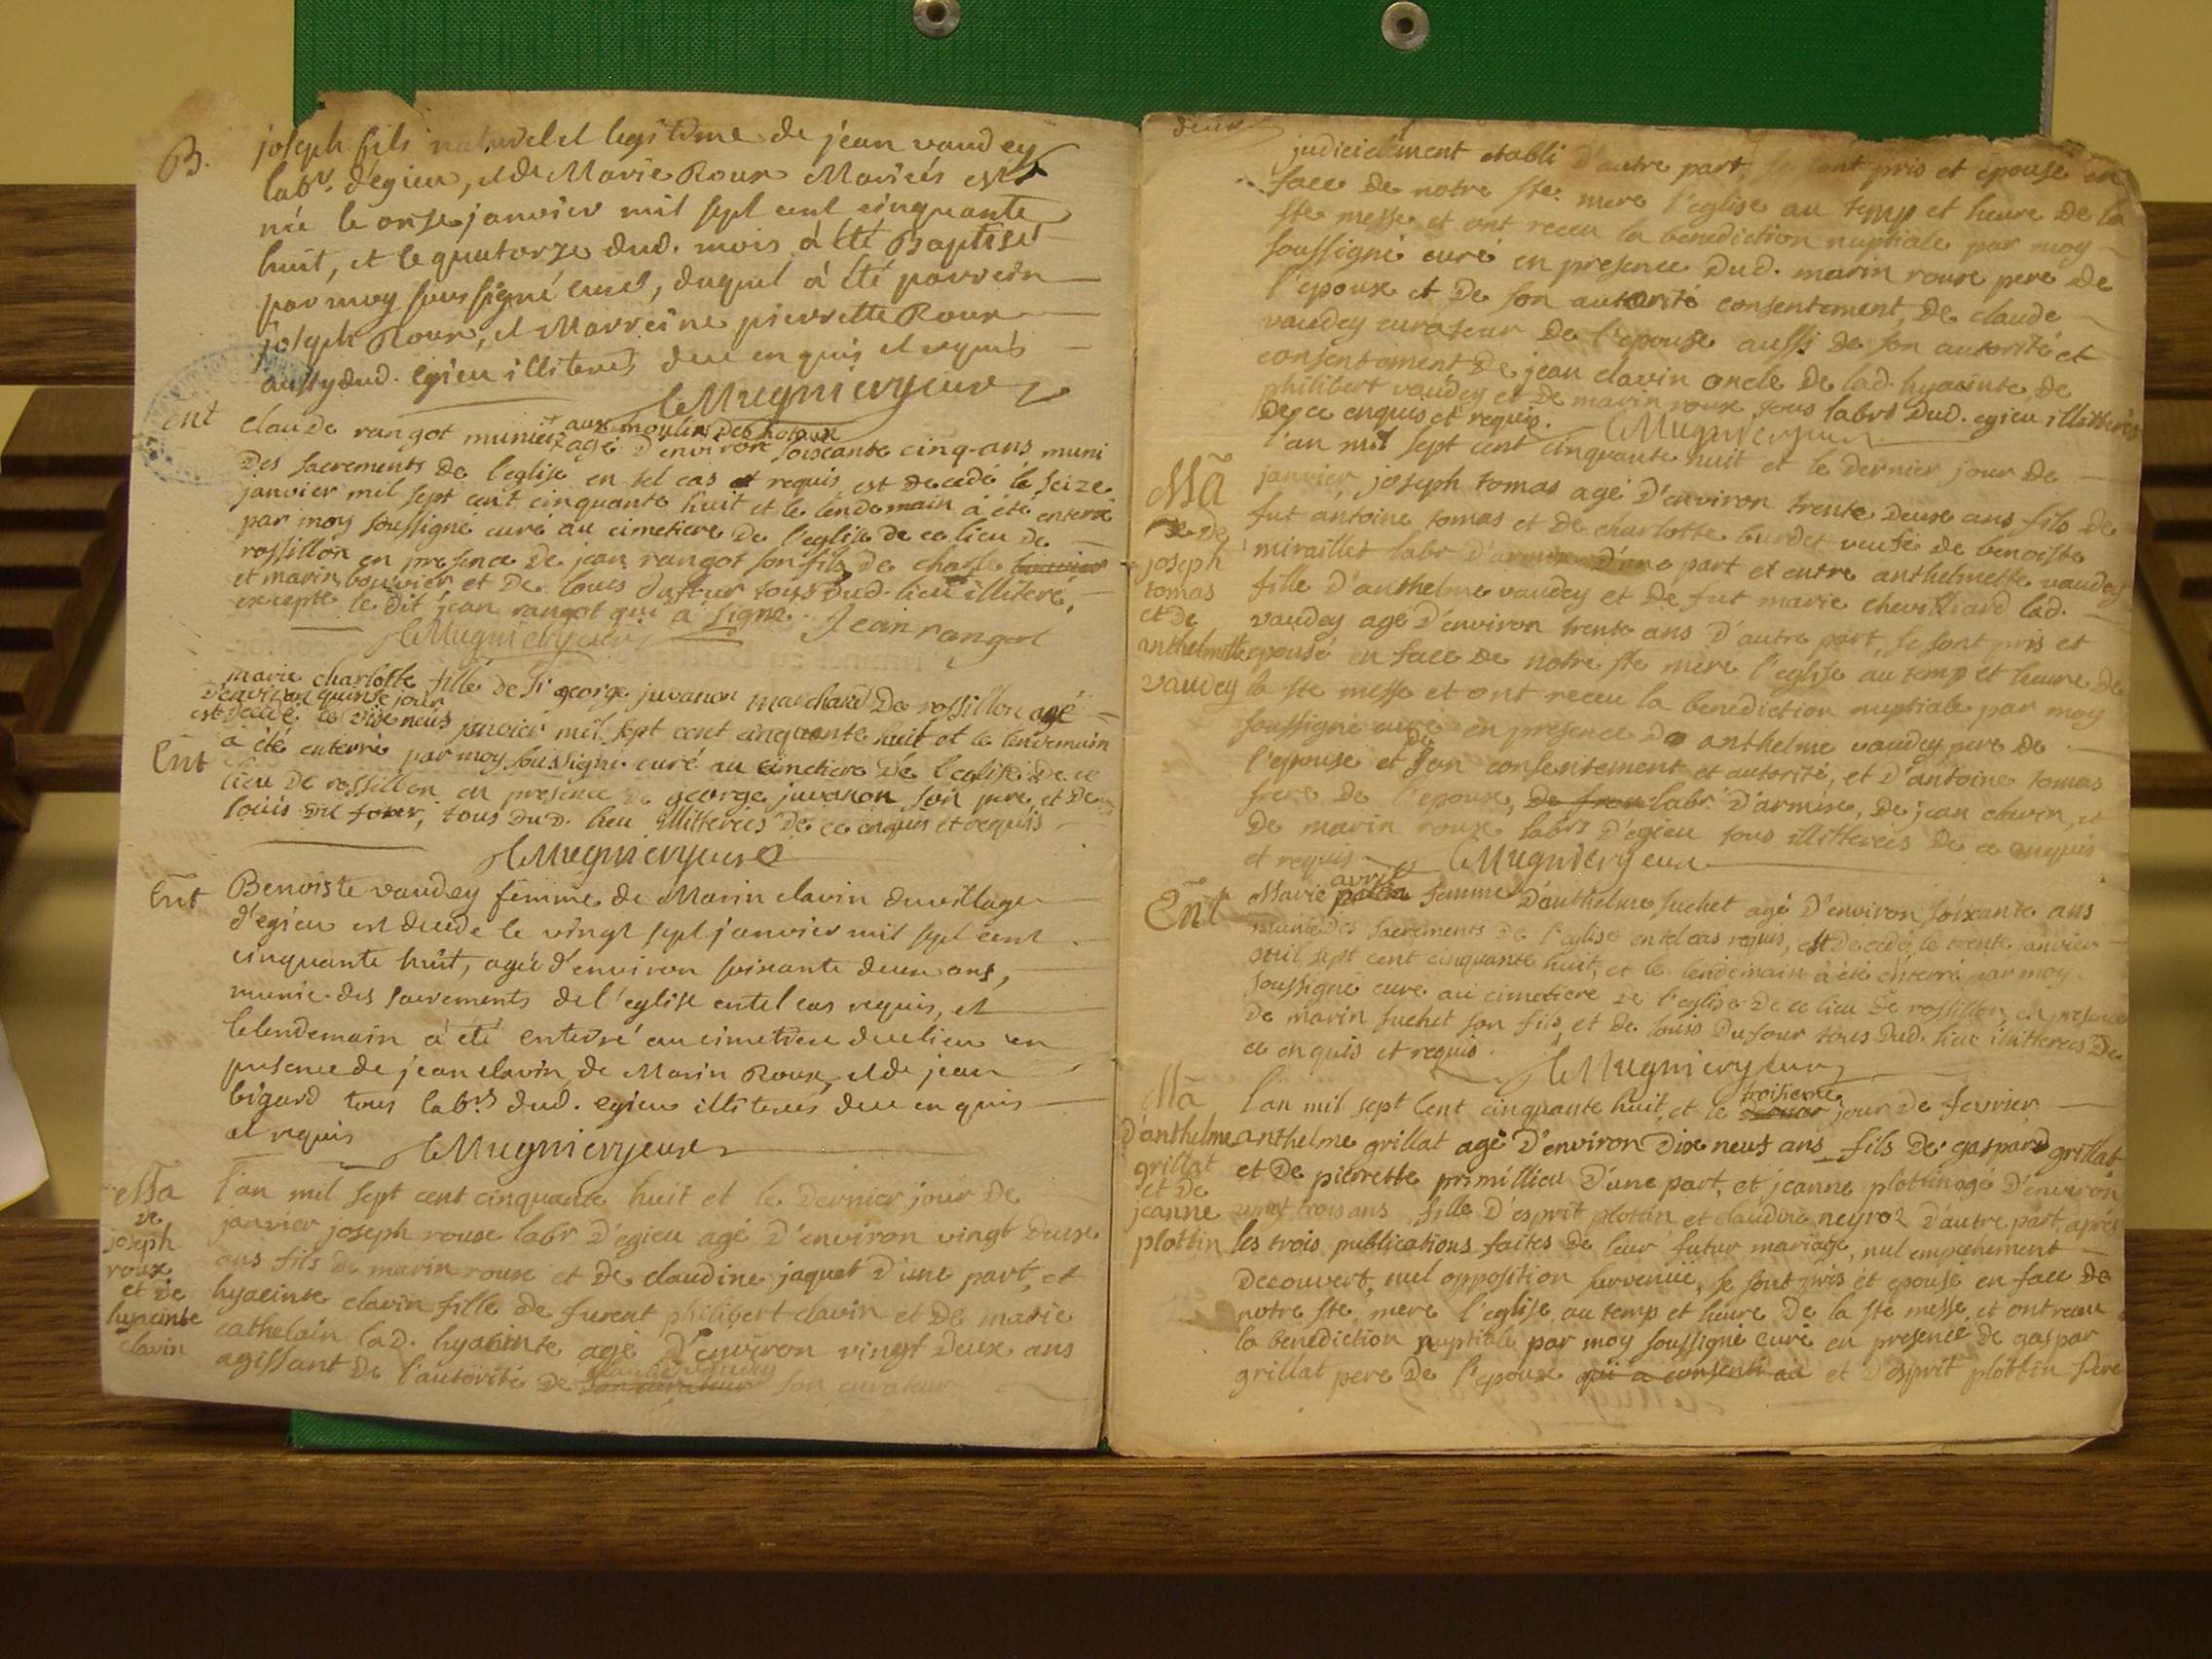 B.
joseph fils naturel et legitime de jean vaudey
labr. d'egieu, et de Marie Roux Mariés est
né le onse janvier mil sept cent cinquante
huit, et le quatorze dud. mois à été Baptisé
par moy soussigné curé, duquel à été parrein
joseph Roux, et Marreine pierrette Roux
aussy dud. egieu illiterés de ce enquis et requis
Mugnieryeure
ent
aux moulin des hotaux
claude rangot munier agé d'environ soixante cinq-ans muni
des sacrements de l'eglise en tel cas requis est decedé le seize
janvier mil sept cent cinquante huit et le lendemain à été enterré
par moy soussigné curé au cimetiere de l'eglise de ce lieu de
rossillon en presence de jean rangot son fils de charle bouvier
et marin bouvier et de louis dufour tous dud. lieu illiteré,
excepte le dit jean rangot qui à signé. Jean rangot
Mugnieryeure
marie charlotte fille de Sr george juvanon marchand de rossillon agé
d'environ quinse jour
est decedé le dixe neuf janvier mil sept cent cinquante huit et le lendemain
Ent
à été enterré par moy soussigné curé au cimetiere de l'eglise de ce
lieu de rossillon en presence de george juvanon son pere et de
louis du four, tous dud. lieu illitterées de ce enquis et requis
Mugnieryeure
Ent
Benoiste vaudey femme de Marin clavin du village
d'egieu est decede le vingt sept janvier mil sept cent
cinquante huit, agée d'environ soixante deux ans,
munie des sacrements de l'eglise en tel cas requis, et
le lendemain à été enterré au cimetiere de ce lieu en
presence de jean clavin, de Marin Roux, et de jean
bigard tous labrs dud. egieu illiterés de ce enquis
et requis Mugnieryeure
Ma
de
joseph
roux
et de
hyacinte
clavin
l'an mil sept cent cinquante huit et le dernier jour de
janvier joseph roux labr d'egieu agé d'environ vingt deux
ans fils de marin roux et de claudine jaquet d'une part, et
hyacinte clavin fille de furent philibert clavin et de marie
cathelain lad. hyacinte agé d'environ vingt deux ans
claude vaudey
agissant de l'autorité de son curateur son curateur
deux
judiciellement etabli d'autre part, se sont pris et epousé en
face de notre ste. mere l'eglise au temp et heure de la
ste messe et ont receu la benediction nuptiale par moy
soussigné curé en presence dud. marin roux pere de
l'epoux et de son autorité consentement, de claude
vaudey curateur de l'epouse aussi de son autorité et
consentement de jean clavin oncle de lad. hyacinte, de
philibert vaudey et de marin roux tous labrs dud. egieu illitterés
de ce enquis et requis. Mugnieryeure
Mã
de
joseph
tomas
et de
anthelmette
vaudey
l'an mil sept cent cinquante huit et le dernier jour de
janvier, joseph tomas agé d'environ trente deux ans fils de
fut antoine tomas et de charlotte burdet veufé de benoiste
miraillet labr d'armix d'une part et entre anthelmette vaudey
fille d'anthelme vaudey et de fut marie chevilliard lad.
vaudey agé d'environ trente ans d'autre part, se sont pris et
epousé en face de notre ste mere l'eglise au temp et heure de
la ste messe et ont receu la benediction nuptiale par moy
soussigné curé en presence de anthelme vaudey pere de
l'epouse et de son consentement et autorité, et d'antoine tomas
frere de l'epoux, labr. d'armix, de jean clavin, et
de marin roux labrs d'egieu tous illitterées de ce enquis
et requis Mugnieryeure
Ent
avril
Marie femme d'anthelme suchet agé d'environ soixante ans
munie des sacrements de l'eglise en tel cas requis, est decedé le trente janvier
mil sept cent cinquante huit, et le lendemain à été enterré par moy
soussigné curé au cimetiere de l'eglise de ce lieu de rossillon, en presence
de marin suchet son fils et de louis dufour tous dud. lieu illitterées de
ce enquis et requis. Mugnieryeure
Mã
d'anthelme
grillat
et de
jeanne
plottin
troisieme
l'an mil sept cent cinquante huit, et le jour de fevrier
anthelme grillat agé d'environ dixe neuf ans fils de gaspard grillat
et de pierrette primillieu d'une part, et jeanne plottin agé d'environ
vingt trois ans fille d'esprit plottin et claudine neyroz d'autre part, après
les trois publications faites de leur futur mariage, nul empechement
decouvert, nul opposition survenue, se sont pris et epousé en face de
notre ste mere l'eglise au temp et heure de la ste messe et ont receu
la benediction nuptiale par moy soussigné curé en presence de gaspar
grillat pere de l'epoux qui a consenti au et d'esprit plottin pere